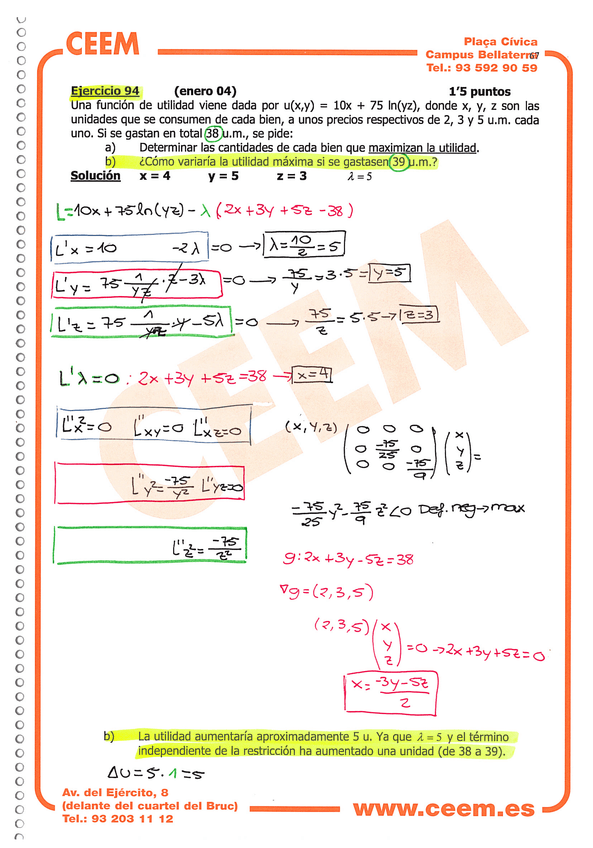 CEEM
Plaça Cívica
Campus Bellaterra
67
Tel.: 93 592 90 59
Ejercicio 94 (enero 04) 1'5 puntos
Una función de utilidad viene dada por u(x,y) = 10x + 75 ln(yz), donde x, y, z son las
unidades que se consumen de cada bien, a unos precios respectivos de 2, 3 y 5 u.m. cada
uno. Si se gastan en total 38 u.m., se pide:
a) Determinar las cantidades de cada bien que maximizan la utilidad.
b) ¿Cómo variaría la utilidad máxima si se gastasen 39 u.m.?
Solución x = 4 y = 5 z = 3 λ = 5
L=10x+75ln(yz)-λ(2x+3y+5z-38)
L'x=10 -2λ=0 → λ=10/2=5
L'y=75 1/yz·z-3λ=0 → 75/y=3·5= y=5
L'z=75 1/yz·y-5λ=0 → 75/z=5·5→ z=3
L'λ=0: 2x+3y+5z=38 → x=4
L''x²=0 L''xy=0 L''xz=0
(x,y,z) (0 0 0
0 -75/25 0
0 0 -75/9) (x
y
z)=
L''y²=-75/y² L''yz=0
=-75/25 y²-75/9 z²<0 Def.neg→max
L''z²=-75/z²
g:2x+3y-5z=38
∇g=(2,3,5)
(2,3,5) (x
y
z)=0→2x+3y+5z=0
x=-3y-5z/2
b) La utilidad aumentaría aproximadamente 5 u. Ya que λ = 5 y el término
independiente de la restricción ha aumentado una unidad (de 38 a 39).
ΔU=5·1=5
Av. del Ejército, 8
(delante del cuartel del Bruc)
Tel.: 93 203 11 12
www.ceem.es
CEEM